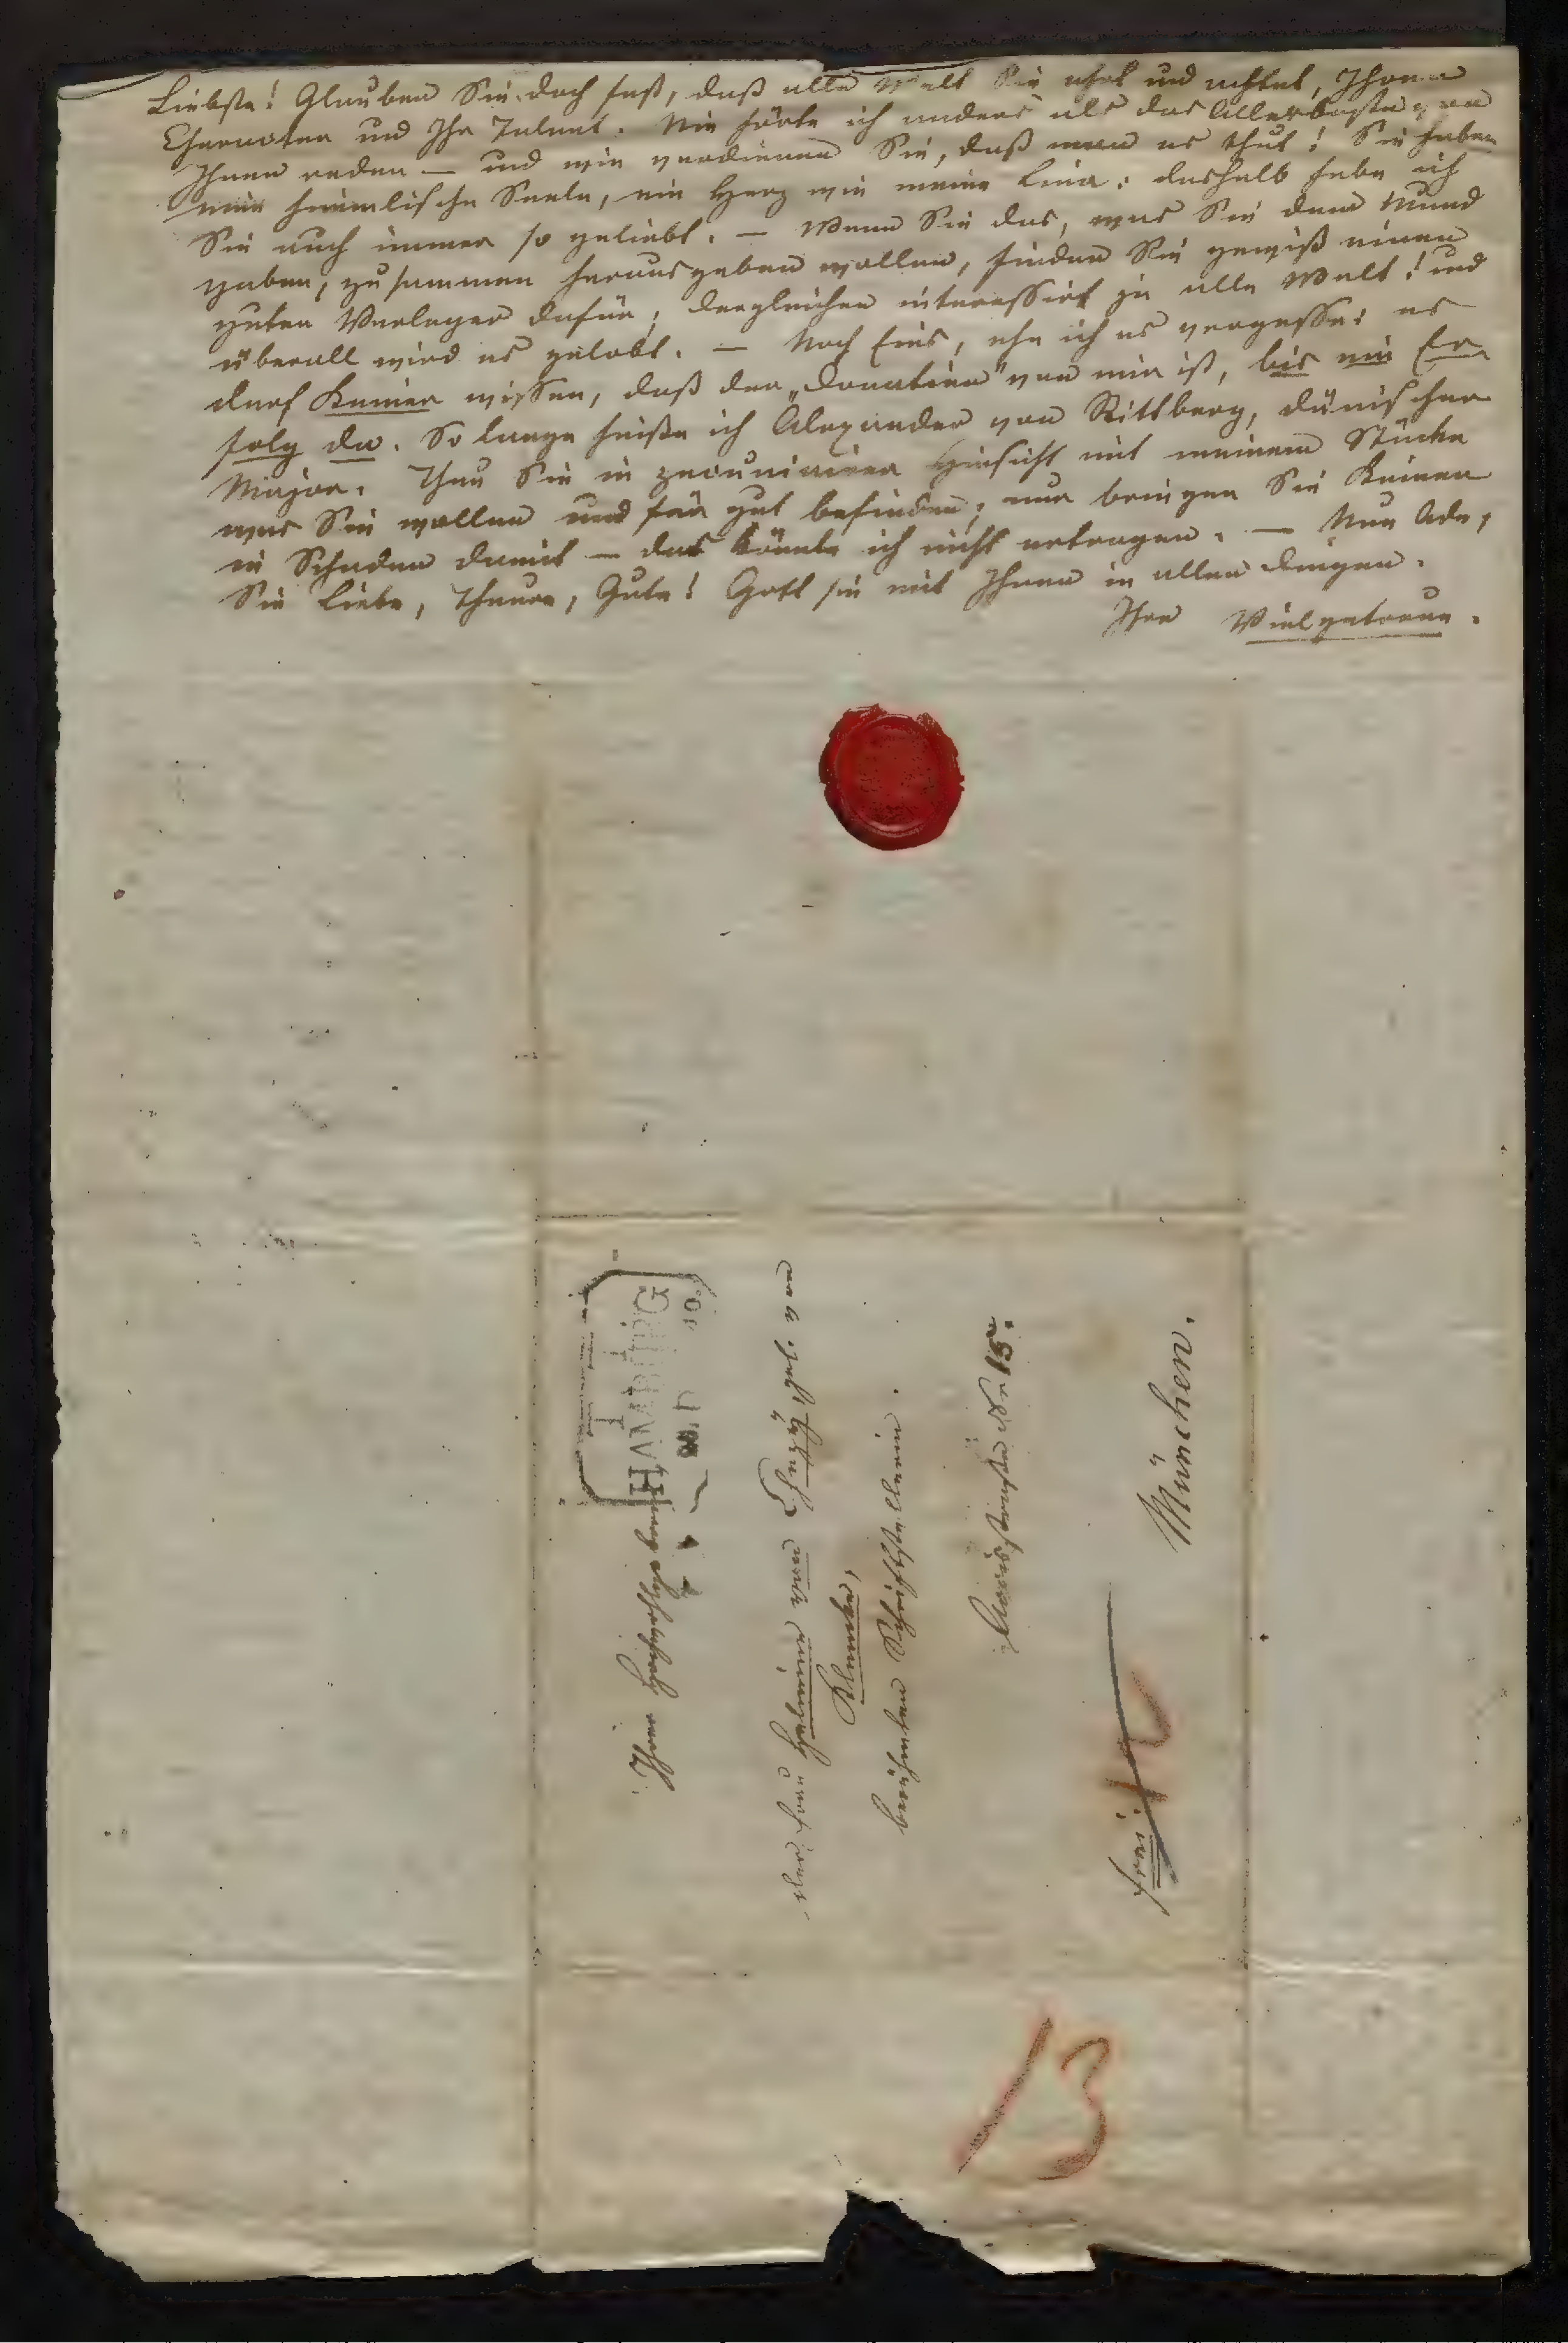 Liebste! Glauben Sie doch fest, daß alle Welt Sie ehrt und achtet, Ihren
Character und Ihr Talent. Nie hörte ich anders als das Allerbeste von
Ihnen reden — und wie verdienen Sie, daß man es thut! Sie haben
eine himmlische Seele, ein Herz wie meine Lina: deshalb habe ich
Sie auch immer so geliebt. — Wenn Sie das, was Sie dem Mund
gaben, zusammen herausgeben wollen, finden Sie gewiß einen
guten Verleger dafür; dergleichen interessirt ja alle Welt! und
überall wird es gelobt. — Noch Eins, ehe ich es vergesse: es
darf Keiner wissen, daß der „Donatien" von mir ist, bis ein Er-
folg da. So lange heiße ich Alexander von Rittberg, dänischer
Major. Thun Sie in pecuniairer Hinsicht mit meinem Stücke
was Sie wollen und für gut befinden; nur bringen Sie Keinen
in Schaden damit — das könnte ich nicht ertragen. — Nun Ade,
Sie Liebe, Theure, Gute! Gott sei mit Ihnen in allen Dingen.
Ihre Vielgetreue.
HAMBURG
Ihrer Hochwohlgeboren
der Frau Helmina von Chezÿ, geb. von
Klencke,
berühmten Schriftstellerin.
15.
München.
frei.
13